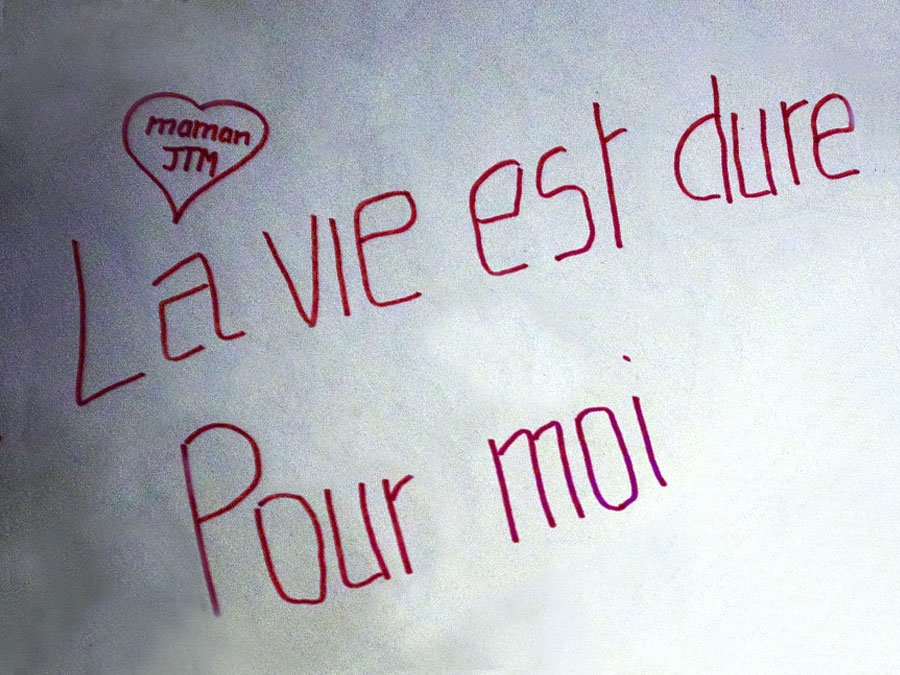 maman
JTM
La vie est dure
Pour moi